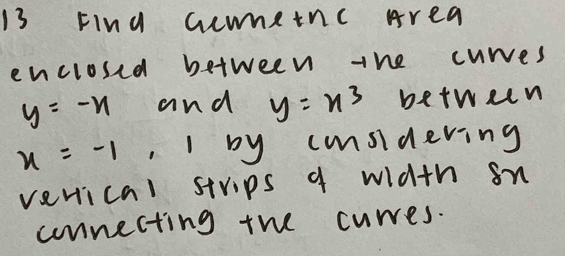 13 Find Geometric Area
enclosed between the curves
y = -x and y = x³ between
x = -1, 1 by considering
vertical strips of width δx
connecting the curves.